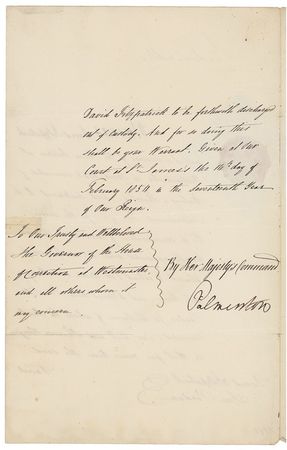 David Fitzpatrick to be forthwith discharged
out of Custody. And for so doing this
shall be your Warrant. Given at Our
Court at St. James's the 14th day of
February 1854 in the Seventeenth Year
of Our Reign.
To Our Trusty and Wellbeloved
The Governor of the House
of Correction at Westminster
and all others whom it
may concern.
By Her Majesty's Command
Palmerston